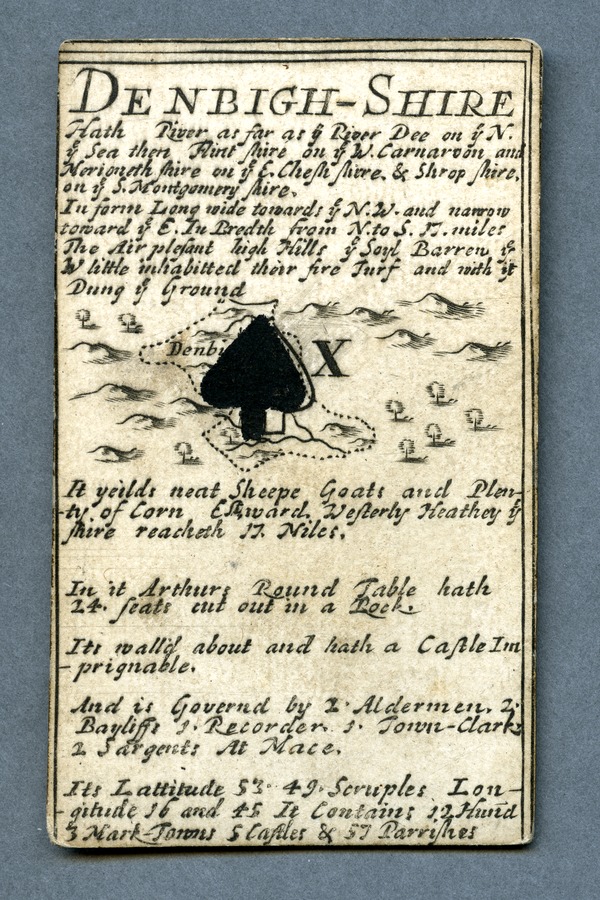 DENBIGH-SHIRE
Hath River as far as ẙ River Dee on ẙ N.
ẙ Sea then Flint ſhire on ẙ W. Carnarvon and
Merioneth ſhire on ẙ E. Cheſh ſhire & Shrop ſhire,
on ẙ S. Montgomery ſhire.
In form Long wide towards ẙ N.W. and narrow
toward ẙ E. In Bredth from N. to S. 17. miles
The Air pleſant high Hills ẙ Soyl Barren ẙ
W little inhabitted their fire Turf and with it
Dung ẙ Ground
Denbi
X
It yeilds neat Sheepe Goats and Plen-
ty of Corn Eſtward. Weſterly Heathey ẙ
ſhire reacheth 17. Miles.
In it Arthurs Round Table hath
24. ſeats cut out in a Rock.
Its wall'd about and hath a Caſtle Im
-prignable.
And is Governd by 2. Aldermen. 2.
Bayliffs 1. Recorder. 1. Town-Clark
2 Sargents At Mace.
Its Lattitude 53. 49. Scruples Lon-
-gitude 16 and 45 It Contains 12 Hund
3 Mark-Towns 5 Caſtles & 57 Parriſhes